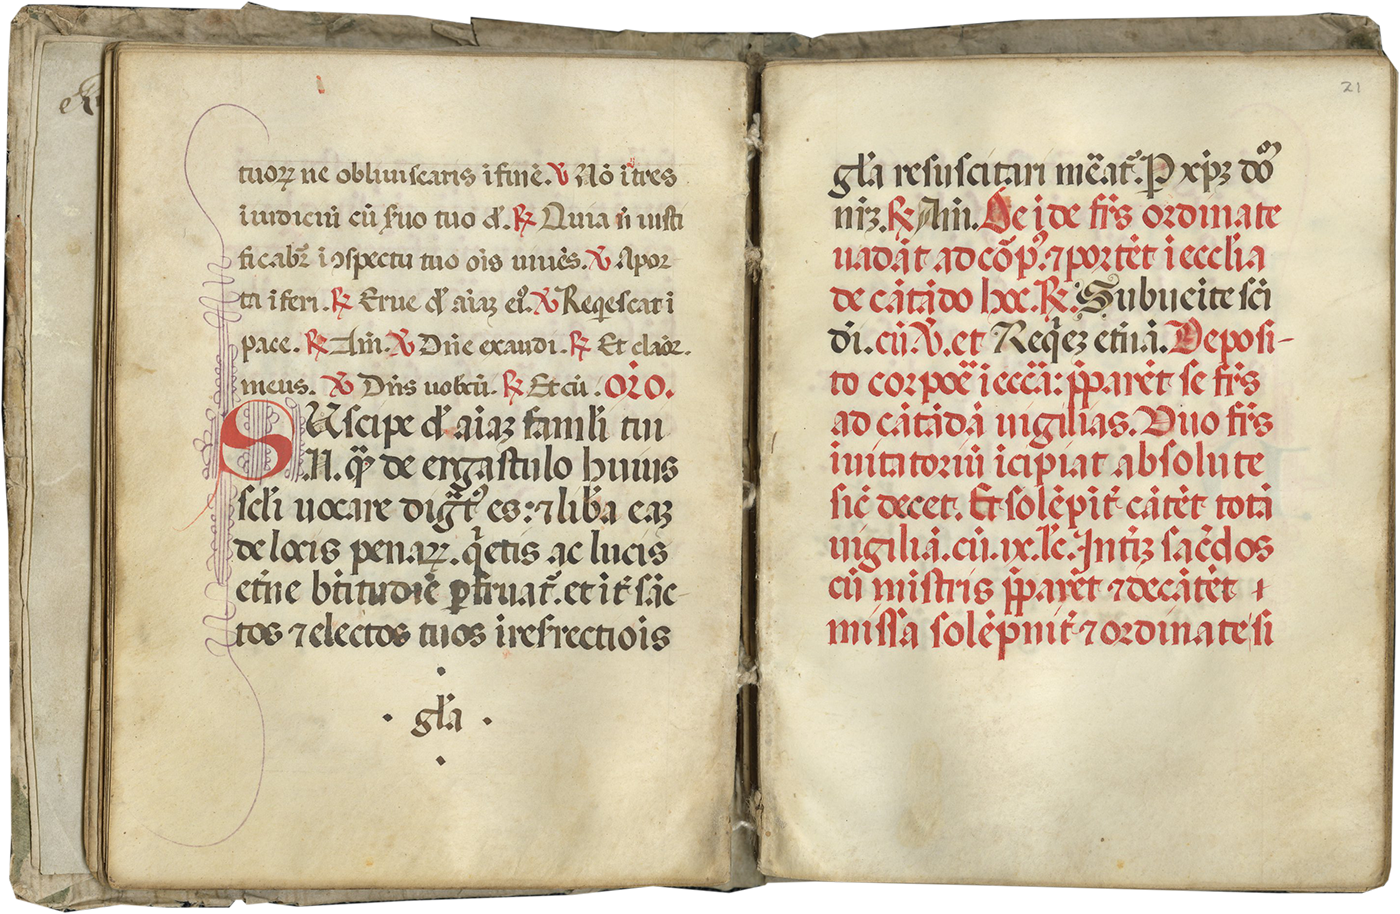 tuoꝝ ne obliuiscaris ī finē. ℣ Nō ītres
ī iudiciū cū ſuo tuo d̄. ℟ Quia ñ iusti
ficabr̄ ī ↄspectu tuo oīs uiuēs. ℣ A por
ta īferi. ℟ Erue d̄ aīaꝫ ei᷒. ℣ Reqescat ī
pace. ℟ Am̄. ℣ Dn̄e exaudi. ℟ Et clāor.
meus. ℣ Dn̄s uobcū. ℟ Et cū. ORO.
SUscipe d̄ aīaꝫ famuli tui
.N. q̄ꝫ de ergastulo huius
scl̄i uocare digt᷒ es: ⁊ lib̄a eaꝫ
de locis penaꝝ. q̇etis ac lucis
et̄ne b̄titudīe ꝑfruat̄. et īt̄ sāc
tos ⁊ electos tuos ī resrectiōis
· gl̄a ·
21
gl̄a resuscitari m̄eat̄. P xp̄ꝫ dōm̄
nr̄ꝫ. ℟ Am̄. De īde fr̄s ordinate
uadāt ad cōꝑ᷒. ⁊ portēt ī ecclīa
de cātādo hoc. ℟. Subueīte sc̄i
dī. cū ℣. et Reqēꝫ et̄nā. Deposi-
to corpoē ī eccā: p̄parēt se fr̄s
ad cātādā uigilias. Duo fr̄s
īuitatoriū īcipiāt absolute
sic̄ decet. Et solēpit̄ cātēt totā
uigiliā. cū .ix. lc̄. Intīꝫ sac̄dos
cū mīstris p̄parēt ⁊ decātēt
missā solēpnit̄ ⁊ ordinate si